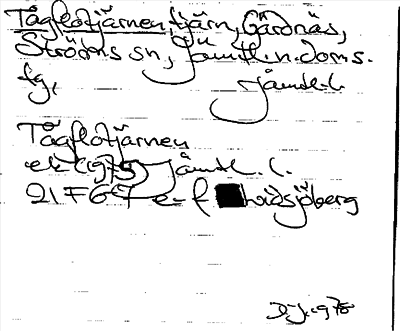 Tågflotjärnen, tjärn, Gärdnäs,
Ströms sn, Jämtl. n. doms.
sg, Jämtl. l.
Tågflotjärnen
ek (1975) Jämtl. l.
21F 6-7 e-f hvidsjöberg
D.J. 1978